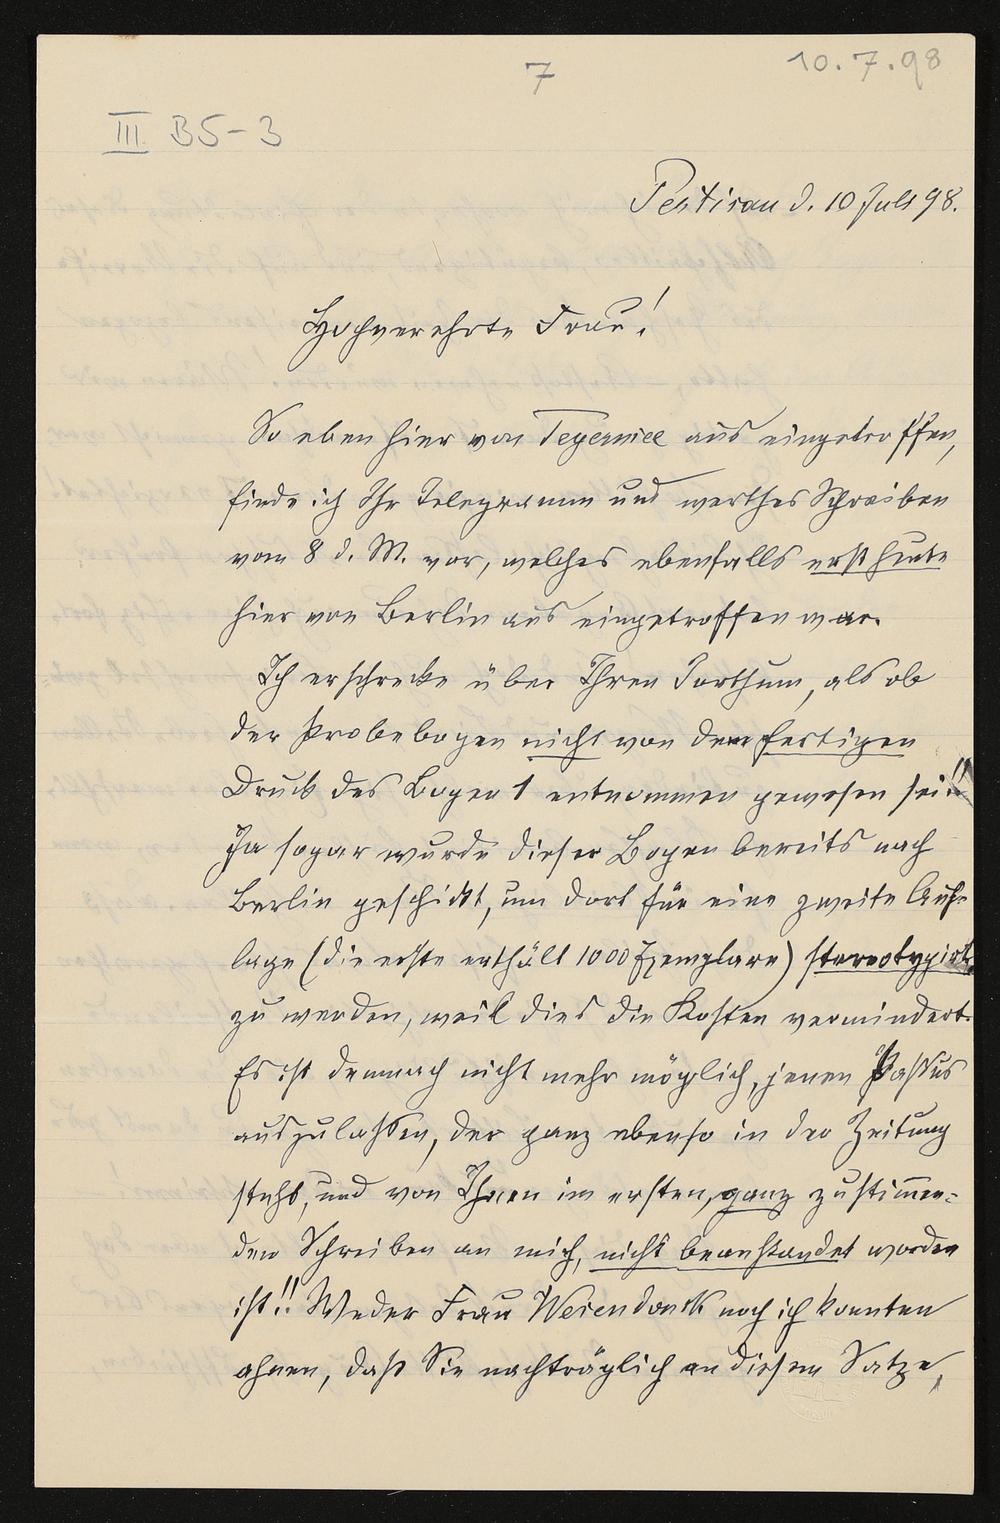 7
10.7.98
III B5-3
Pertisau d. 10 Juli 98.
Hochverehrte Frau!
So eben hier von Tegernsee aus eingetroffen,
finde ich Ihr Telegramm und werthes Schreiben
vom 8 d. M. vor, welches ebenfalls erst heute
hier von Berlin aus eingetroffen war.
Ich erschrecke über Ihren Irrthum, als ob
der Probebogen nicht von dem fertigen
Druck des Bogen 1 entnommen gewesen sei!!
Ja sogar wurde dieser Bogen bereits nach
Berlin geschickt, um dort für eine zweite Auf-
lage (die erste enthält 1000 Exemplare) stereotypirt
zu werden, weil dies die Kosten vermindert.
Es ist demnach nicht mehr möglich, jenen Passus
auszulassen, der ganz ebenso in der Zeitung
steht, und von Ihnen im ersten, ganz zustimmen=
den Schreiben an mich, nicht beanstandet worden
ist!! Weder Frau Wesendonck noch ich konnten
ahnen, daß Sie nachträglich an diesem Satze,